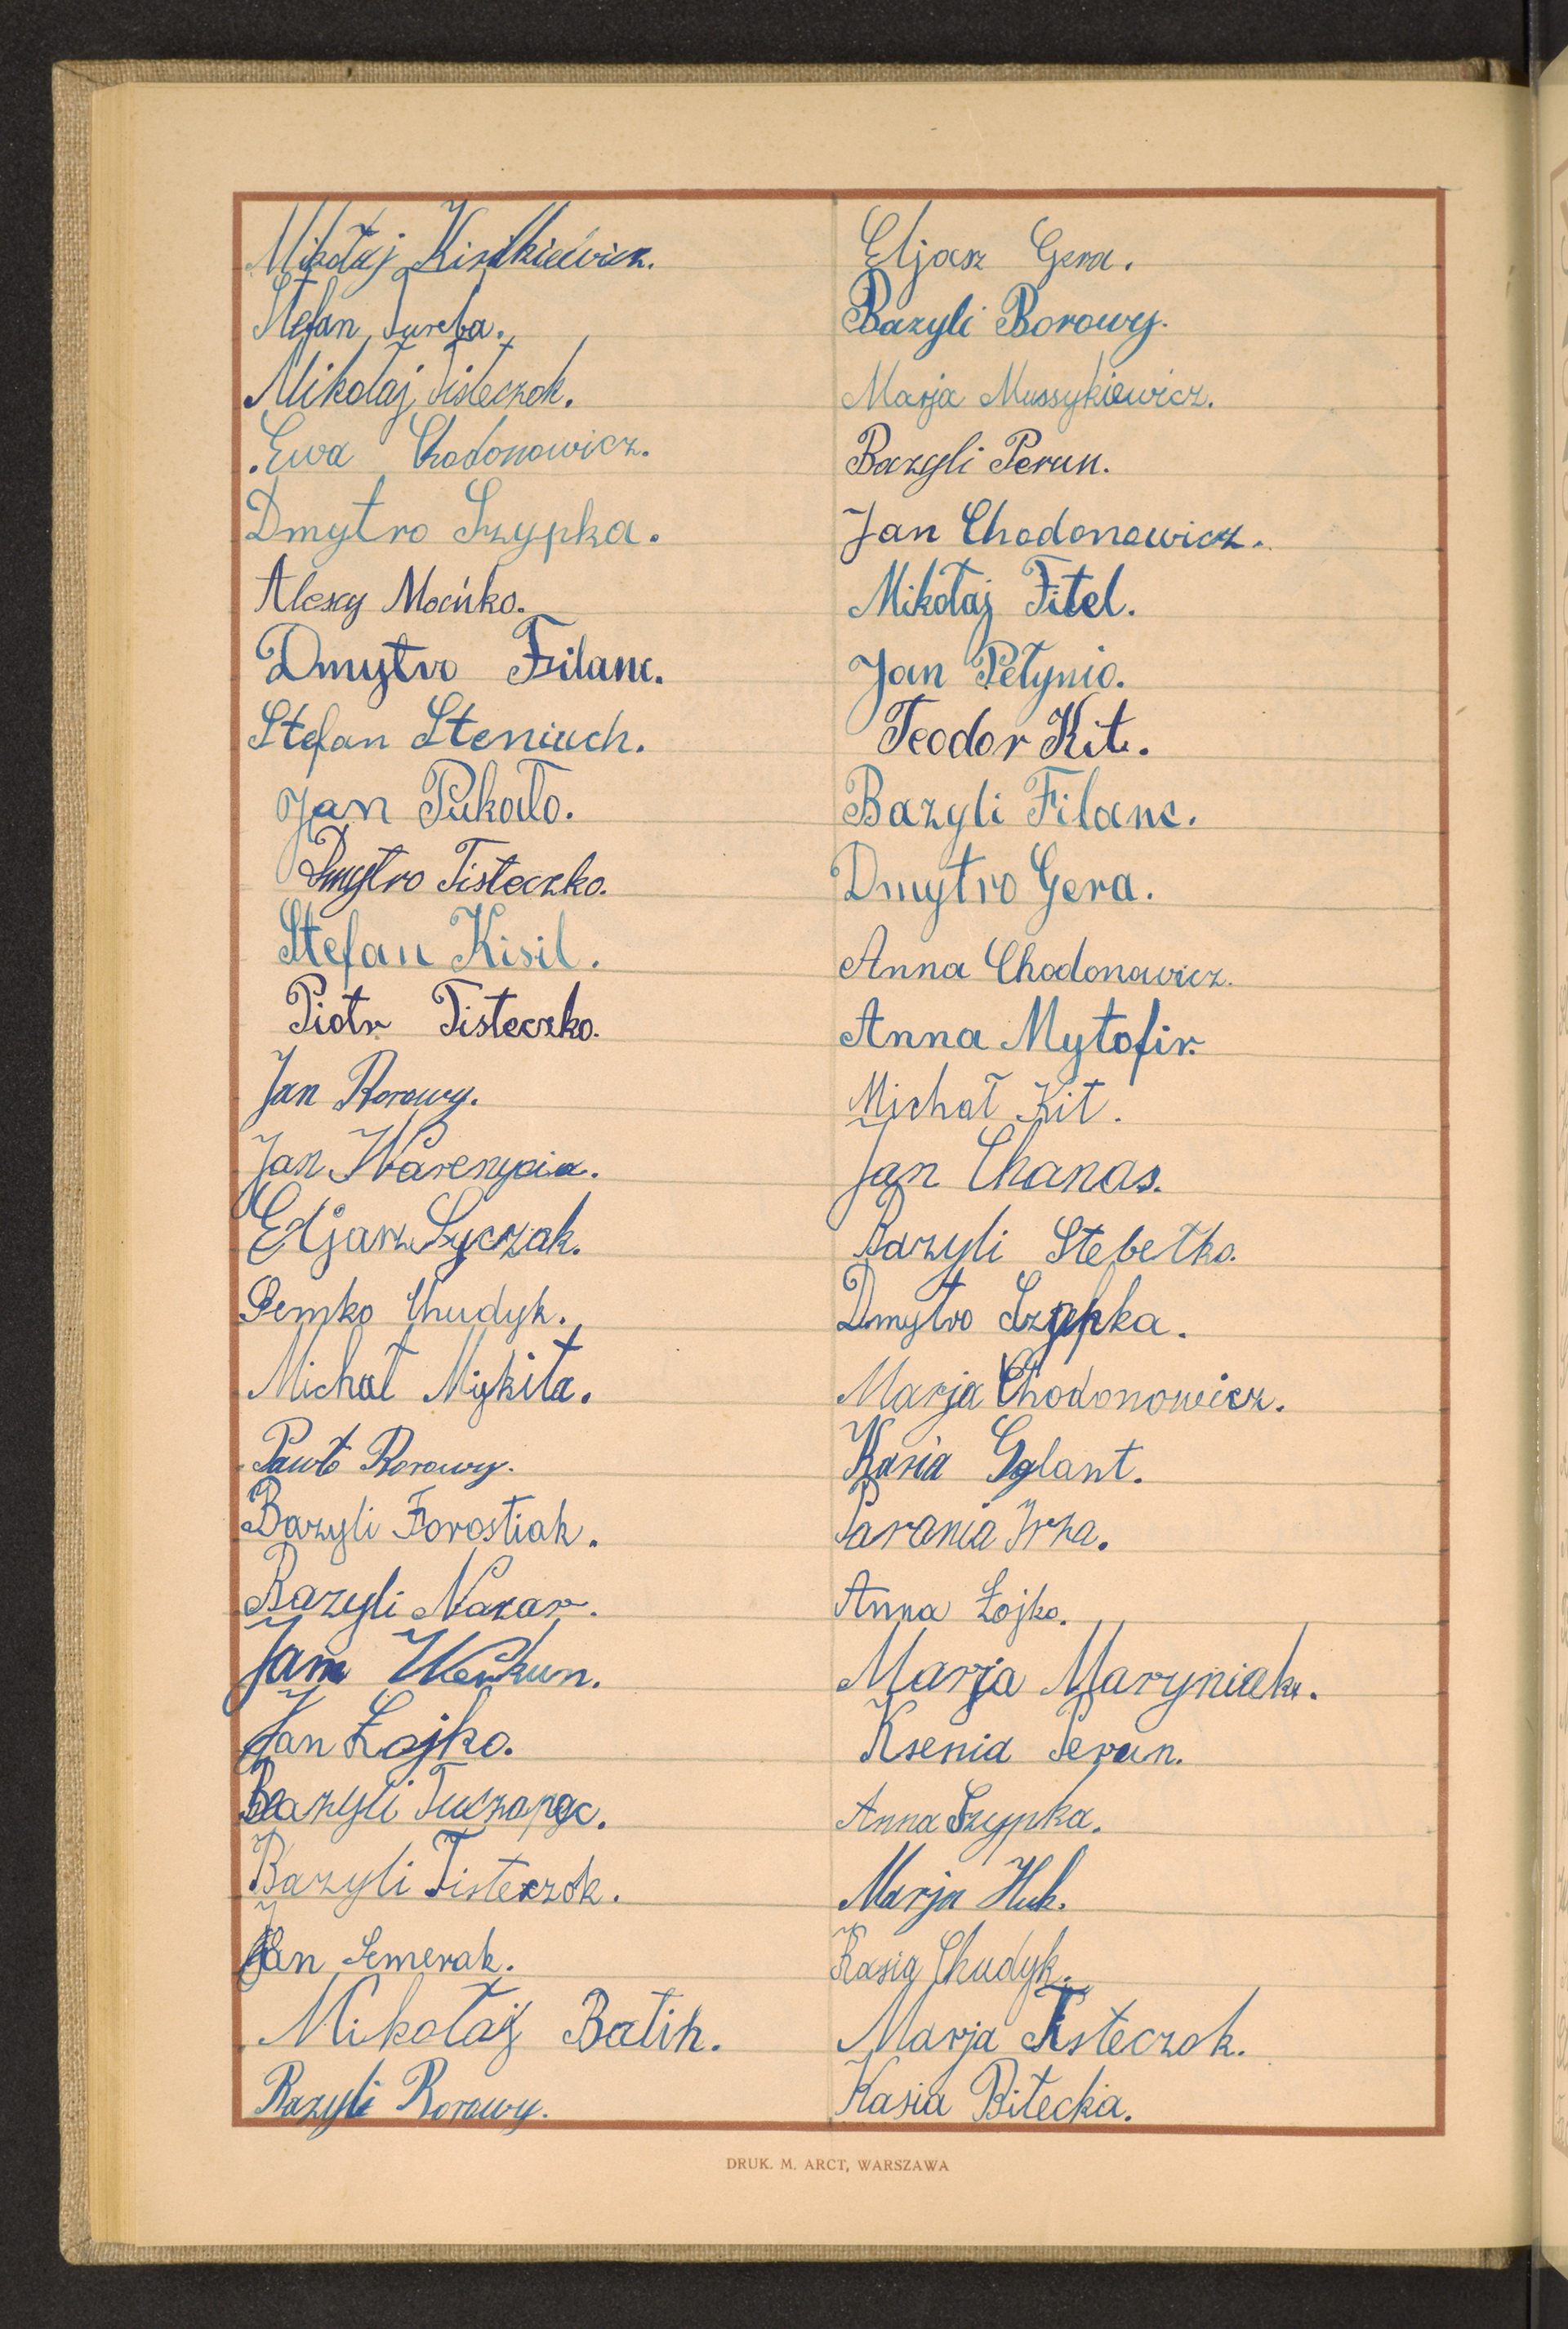 Mikołaj Kisilkiewicz.
Stefan Tureba.
Mikołaj Tisteczok.
Ewa Chodonowicz.
Dmytro Szypka.
Alexy Mońko.
Dmytro Filanc.
Stefan Steniuch.
Jan Pukało.
Dmytro Tisteczko.
Stefan Kisil.
Piotr Tisteczko.
Jan Borowy.
Jan
Eljasz Syczak.
Demko Chudyk.
Michał Mykita.
Pawło Borowy.
Bazyli Forostiak.
Bazyli Nazar.
Jan Werhun.
Jan Łojko.
Bazyli
Bazyli Tisteczok.
Jan Semerak.
Mikołaj Batih.
Bazyli Borowy.
Eljasz Gera.
Bazyli Borowy.
Marja Mussykiewicz.
Bazyli Perun.
Jan Chodonowicz.
Mikołaj Fitel.
Jan Petynio.
Teodor Kit.
Bazyli Filanc.
Dmytro Gera.
Anna Chodonowicz.
Anna Mytofir.
Michał Kit.
Jan Chanas.
Bazyli Stebełko.
Dmytro Szypka.
Marja Chodonowicz.
Kasia Galant.
Parania Irza.
Anna Łojko.
Marja Maryniak.
Ksenia Perun.
Anna Szypka.
Marja Huk.
Kasia Chudyk.
Marja Tisteczok.
Kasia Bitecka.
DRUK. M. ARCT, WARSZAWA